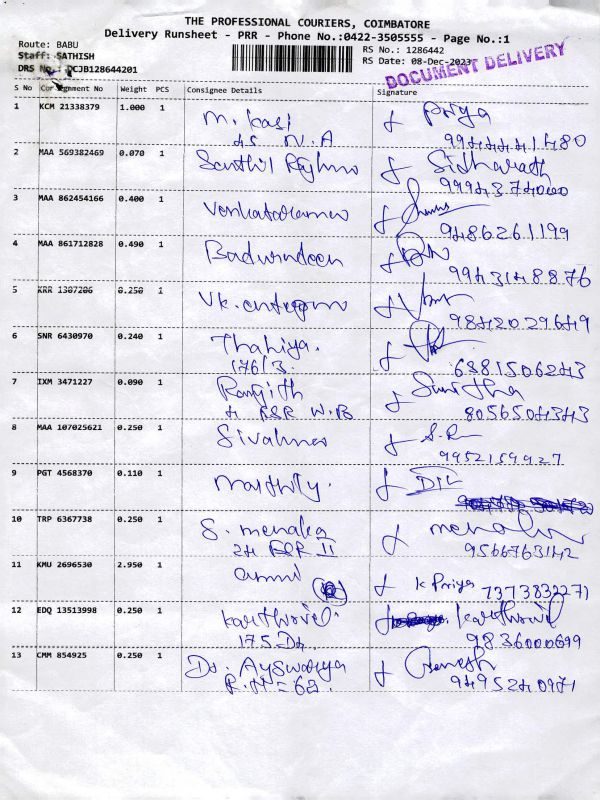 THE PROFESSIONAL COURIERS, COIMBATORE
Delivery Runsheet - PRR - Phone No.:0422-3505555 - Page No.:1
Route: BABU
Staff: SATHISH
DRS No.: PCJB128644201
RS No.: 1286442
RS Date: 08-Dec-2023
DOCUMENT DELIVERY
S No Consignment No Weight PCS Consignee Details Signature
1 KCM 21338379 1.000 1 M. Kasi Priya
N.A 9944441480
2 MAA 569382469 0.070 1 Senthil Sidharath
9994374000
3 MAA 862454166 0.400 1
9486261199
4 MAA 861712828 0.490 1
9943148876
5 KRR 1307206 0.250 1
9842029649
6 SNR 6430970 0.240 1 Thahiya.
176/3. 6381506243
7 IXM 3471227 0.090 1 Ranjith
RSR W.B 8056504343
8 MAA 107025621 0.250 1 S.R
9952159927
9 PGT 4568370 0.110 1
10 TRP 6367738 0.250 1 S. menaka
RSR II 9566763142
11 KMU 2696530 2.950 1 ammi K Priya 7373832271
12 EDQ 13513998 0.250 1
175 9836000699
13 CMM 854925 0.250 1 Dr. Ayswarya Ganesh
R.N = 62 9495240971